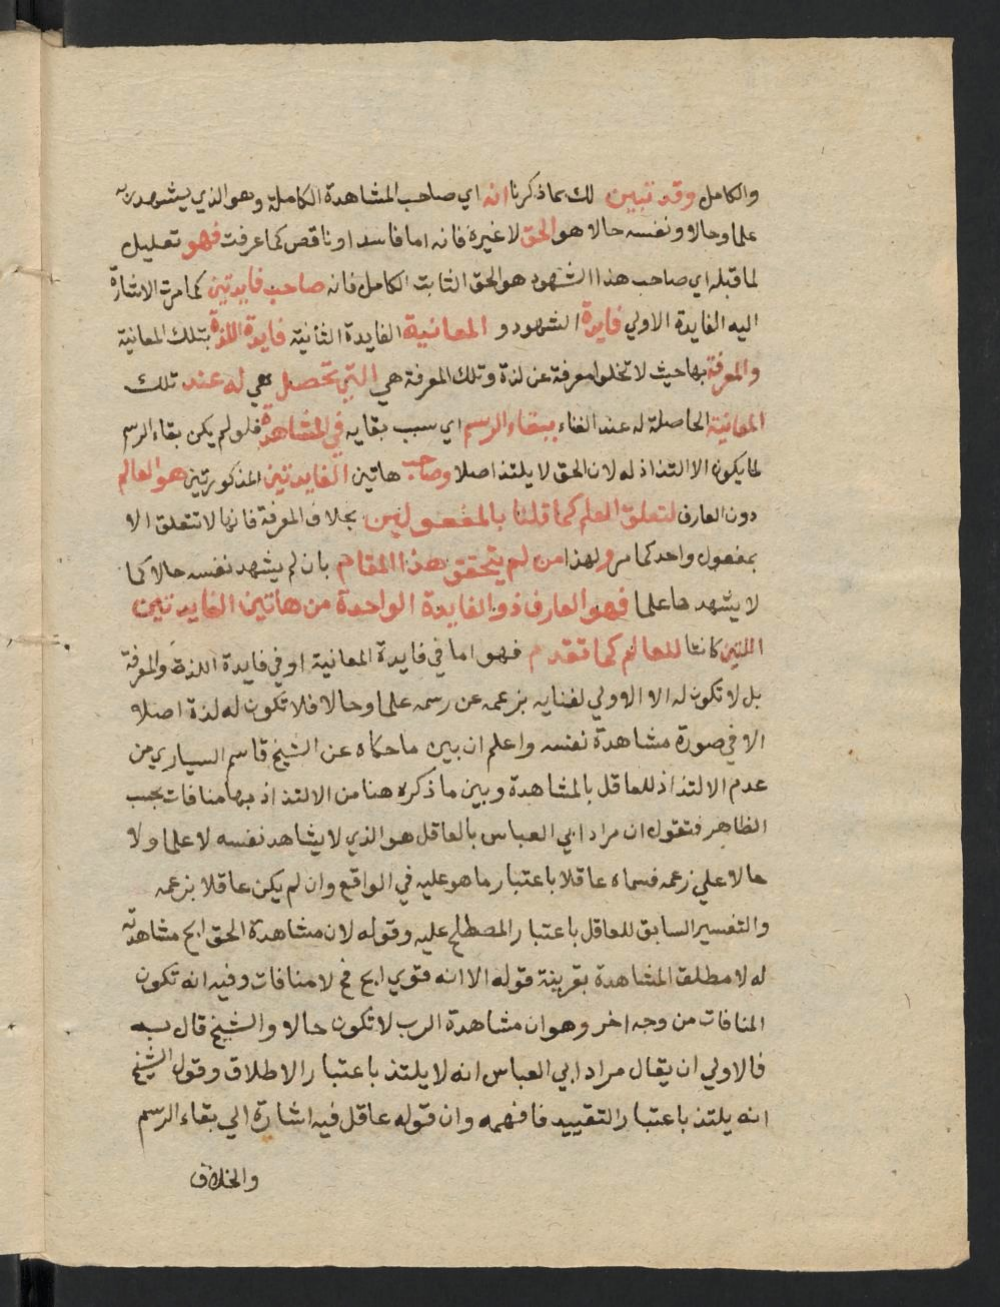 والكامل وقد تبين لك بما ذكرنا انه اي صاحب المشاهدة الكاملة وهو الذي يشهد ربه
علما وحالا ونفسه حالا هو الحق لا غيره فانه اما فاسد او ناقص كما عرفت فهو تعليل
لما قبله اي صاحب هذا الشهود هو الحق الثابت الكامل فانه صاحب فايدتين كما مرت الاشارة
اليه الفايدة الاولي فايدة الشهود و المعانية الفايدة الثانية فايدة اللذة بتلك المعانية
والمعرفة بها حيث لا تخلوا معرفة عن لذة وتلك المعرفة هي التي تحصل هي له عند تلك
المعانية الحاصلة له عند الفناء ببقاء الرسم اي سبب بقايه في المشاهدة فلو لم يكن بقاء الرسم
لما يكون الالتذاذ له لان الحق لا يلتذ اصلا وصاحب هاتين الفايدتين المذكورتين هو العالم
دون العارف لتعلق العلم كما قلنا بالمفعولين بخلاف المعرفة فانها لا تتعلق الا
بمفعول واحد كما مر ولهذا من لم يتحقق هذا المقام بان لم يشهد نفسه حالا كما
لا يشهدها علما فهو العارف ذو الفايدة الواحدة من هاتين الفايدتين
اللتين كانتا للعالم كما تقدم فهو اما في فايدة المعانية او في فايدة اللذة والمعرفة
بل لا تكون له الا الاولي لفنايه بزعمه عن رسمه علما وحالا فلا تكون له لذة اصلا
الا في صورة مشاهدة نفسه واعلم ان بين ما حكاه عن الشيخ قاسم السياري من
عدم الالتذاذ للعاقل بالمشاهدة وبين ما ذكره هنا من الالتذاذ بها منافات بحسب
الظاهر فتقول ان مراد ابي العباس بالعاقل هو الذي لا يشاهد نفسه لا علما ولا
حالا علي زعمه فسماه عاقلا باعتبار ما هو عليه في الواقع وان لم يكن عاقلا بزعمه
والتفسير السابق للعاقل باعتبار المصطلح عليه وقوله لان مشاهدة الحق الخ مشاهدته
له لا مطلقة المشاهدة بقرينة قوله الا انه قوي الخ فح لا منافات وفيه انه تكون
المنافات من وجه اخر وهو ان مشاهدة الرب لا تكون حالا والشيخ قال به
فالاولي ان يقال مراد ابي العباس انه لا يلتذ باعتبار الاطلاق وقول الشيخ
انه يلتذ باعتبار التقييد فافهمه وان قوله عاقل فيه اشارة الي بقاء الرسم